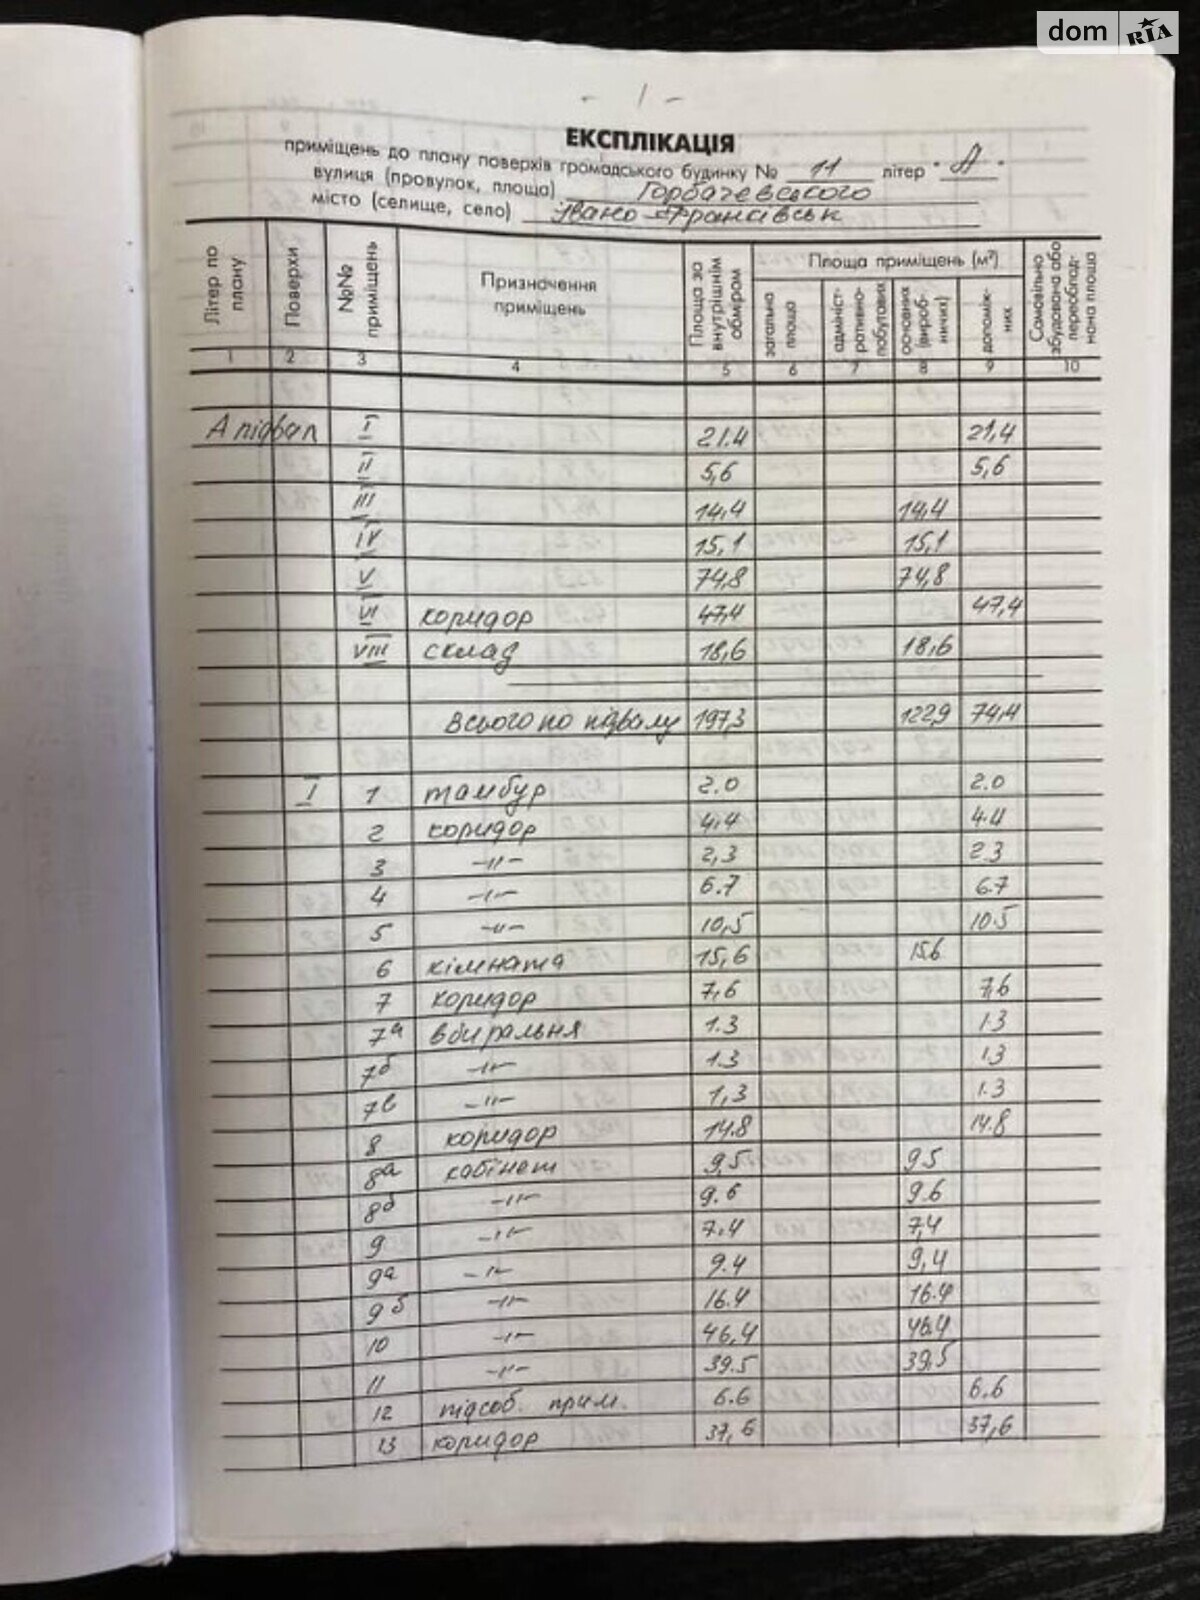 dom RIA
- 1 -
ЕКСПЛІКАЦІЯ
приміщень до плану поверхів громадського будинку № 11 літер "А"
вулиця (провулок, площа) Горбачевського
місто (селище, село) Івано-Франківськ
Літер по плану | Поверхи | №№ приміщень | Призначення приміщень | Площа за внутрішнім обміром | Площа приміщень (м²) | Самовільно збудована або переобладнана площа
загальна площа | адміністративно-побутових | основних (виробничих) | допоміжних
1 2 3 4 5 6 7 8 9 10
А підвал I 21.4 21,4
II 5,6 5,6
III 14,4 14,4
IV 15,1 15,1
V 74,8 74,8
VI коридор 47,4 47,4
VIII склад 18,6 18,6
Всього по підвалу 197,3 122,9 74,4
I 1 тамбур 2.0 2.0
2 коридор 4.4 4.4
3 -"- 2,3 2.3
4 -"- 6.7 6.7
5 -"- 10,5 10.5
6 кімната 15,6 15.6
7 коридор 7,6 7,6
7а вбиральня 1.3 1.3
7б -"- 1.3 1.3
7в -"- 1,3 1.3
8 коридор 14.8 14.8
8а кабінет 9,5 9.5
8б -"- 9.6 9.6
9 -"- 7.4 7,4
9а -"- 9.4 9,4
9б -"- 16.4 16.4
10 -"- 46,4 46.4
11 -"- 39.5 39,5
12 підсоб. прим. 6.6 6.6
13 коридор 37,6 37,6